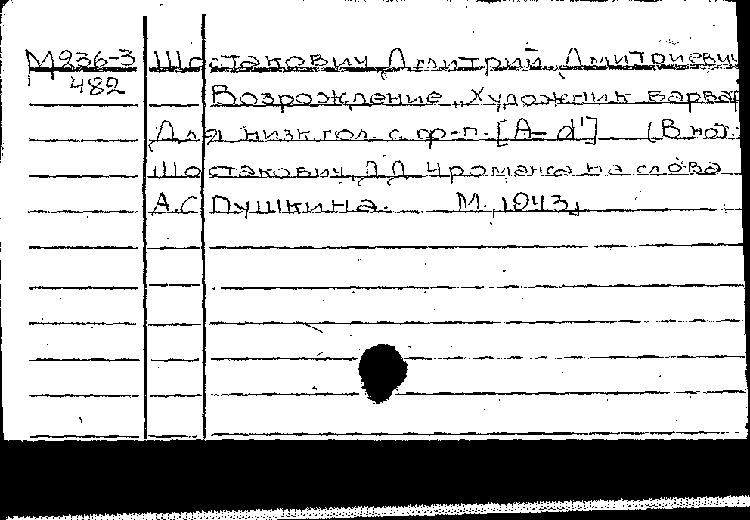 М236-3 Шостакович, Дмитрий Дмитриевич
482 Возрождение „Художник варвар
Для низк. гол. с ф-п. [A-d'] (В нот.:
Шостакович, Д.Д. 4 романса на слова
А.С. Пушкина. М., 1943,